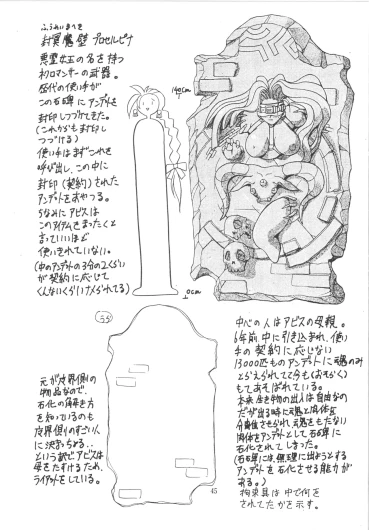 ふうめいまへき
封冥魔壁 プロセルピナ
悪霊女王の名を持つ
ネクロマンサーの武器。
歴代の使い手が
この石碑にアンデットを
封印しつづけてきた。
(これからも封印し
つづける)
使い手はまずこれを
呼び出し、この中に
封印(契約)された
アンデットをあやつる。
ちなみにアビスは
このアイテムをまったくと
言っていいほど
使いきれていない。
(中のアンデットの3分の2くらい
が契約に応じて
くんないくらいナメられてる)
140cm
0cm
うら
元が魔界側の
物品なので、
石化の解き方
を知っているのも
魔界側のすごい人
に決まっちょる‥
という訳でアビスは
母をたすけるため、
ライアットをしている。
中心の人はアビスの母親。
6年前中に引き込まれ、使い
手の契約に応じない
13000匹ものアンデットに魂のみ
とらえられてて今も(おそらく)
もてあそばれている。
本来生き物の出入は自由なの
だが出る時に魂と肉体を
分離させられ、魂をもたない
肉体をアンデットとして石碑に
石化されてしまった。
(石碑には、無理に出ようとする
アンデットを石化させる能力が
ある。)
拘束具は中で何を
されてたかを示す。
45